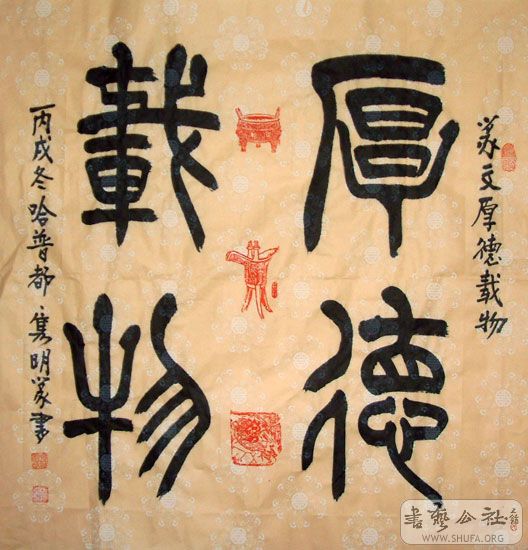 篆文厚德载物
厚德
載物
丙戌冬哈普都集明篆書
書藝公社
WWW.SHUFA.ORG